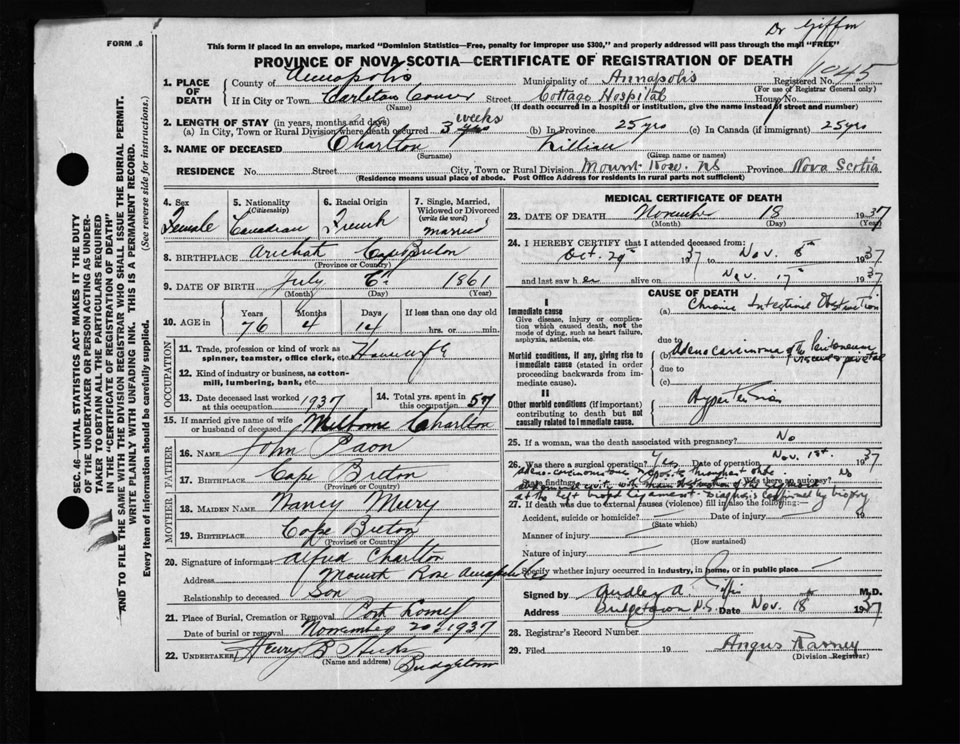 Dr Giffin
FORM 6
This form if placed in an envelope, marked "Dominion Statistics—Free, penalty for improper use $300," and properly addressed will pass through the mail "FREE"
PROVINCE OF NOVA SCOTIA—CERTIFICATE OF REGISTRATION OF DEATH
1. PLACE OF DEATH
County of Annapolis Municipality of Annapolis Registered No. 1045
(For use of Registrar General only)
If in City or Town Street Cottage Hospital House No.
(Name) (If death occurred in a hospital or institution, give the name instead of street and number)
2. LENGTH OF STAY (in years, months and days)
(a) In City, Town or Rural Division where death occurred 3 weeks (b) In Province 25 yrs (c) In Canada (if immigrant) 25 yrs
3. NAME OF DECEASED Charlton Lillian
(Surname) (Given name or names)
RESIDENCE No. Street City, Town or Rural Division Mount Rose. NS Province Nova Scotia
(Residence means usual place of abode. Post Office Address for residents in rural parts not sufficient)
4. Sex Female
5. Nationality (Citizenship) Canadian
6. Racial Origin French
7. Single, Married, Widowed or Divorced (write the word) married
8. BIRTHPLACE Arichat Cape Breton
(Province or Country)
9. DATE OF BIRTH July 6th 1861
(Month) (Day) (Year)
10. AGE in Years Months Days If less than one day
76 4 14 hrs. or min.
OCCUPATION
11. Trade, profession or kind of work as spinner, teamster, office clerk, etc. Housewife
12. Kind of industry or business, as cotton-mill, lumbering, bank, etc.
13. Date deceased last worked at this occupation 1937
14. Total yrs. spent in this occupation 57
15. If married give name of wife or husband of deceased Melborne Charlton
FATHER
16. NAME John Paon
17. BIRTHPLACE Cape Breton
(Province or Country)
MOTHER
18. MAIDEN NAME Nancy
19. BIRTHPLACE Cape Breton
(Province or Country)
20. Signature of informant Alfred Charlton
Address Mount Rose Annapolis Co
Relationship to deceased Son
21. Place of Burial, Cremation or Removal Port Lorne
Date of burial or removal November 20th 1937
22. UNDERTAKER Henry B Hicks
(Name and address) Bridgetown
MEDICAL CERTIFICATE OF DEATH
23. DATE OF DEATH November 18 1937
(Month) (Day) (Year)
24. I HEREBY CERTIFY that I attended deceased from:
Oct. 29th 37 to Nov. 1937
and last saw her alive on Nov. 17th 1937
CAUSE OF DEATH
I
Immediate cause
Give disease, injury or complication which caused death, not the mode of dying, such as heart failure, asphyxia, asthenia, etc.
(a) Chronic Intestinal Obstruction
due to
Morbid conditions, if any, giving rise to immediate cause (stated in order proceeding backwards from immediate cause).
(b) Adenocarcinoma of the Peritoneum visceral & parietal
due to
(c)
II
Other morbid conditions (if important) contributing to death but not causally related to immediate cause.
Hypertension
25. If a woman, was the death associated with pregnancy? No
26. Was there a surgical operation? Yes Date of operation Nov. 1st. 1937
State findings Was there an autopsy? no
Diagnosis confirmed by biopsy
27. If death was due to external causes (violence) fill in also the following:
Accident, suicide or homicide? Date of injury 19
(State which)
Manner of injury
(How sustained)
Nature of injury
Specify whether injury occurred in industry, in home, or in public place
Signed by A. Giffin M.D.
Address Bridgetown N.S. Date Nov. 18 1937
28. Registrar's Record Number
29. Filed 19 Angus
(Division Registrar)
SEC. 46—VITAL STATISTICS ACT MAKES IT THE DUTY OF THE UNDERTAKER OR PERSON ACTING AS UNDERTAKER TO OBTAIN ALL THE PARTICULARS REQUIRED IN THE "CERTIFICATE OF REGISTRATION OF DEATH" AND TO FILE THE SAME WITH THE DIVISION REGISTRAR WHO SHALL ISSUE THE BURIAL PERMIT.
WRITE PLAINLY WITH UNFADING INK. THIS IS A PERMANENT RECORD.
Every item of information should be carefully supplied. (See reverse side for instructions.)